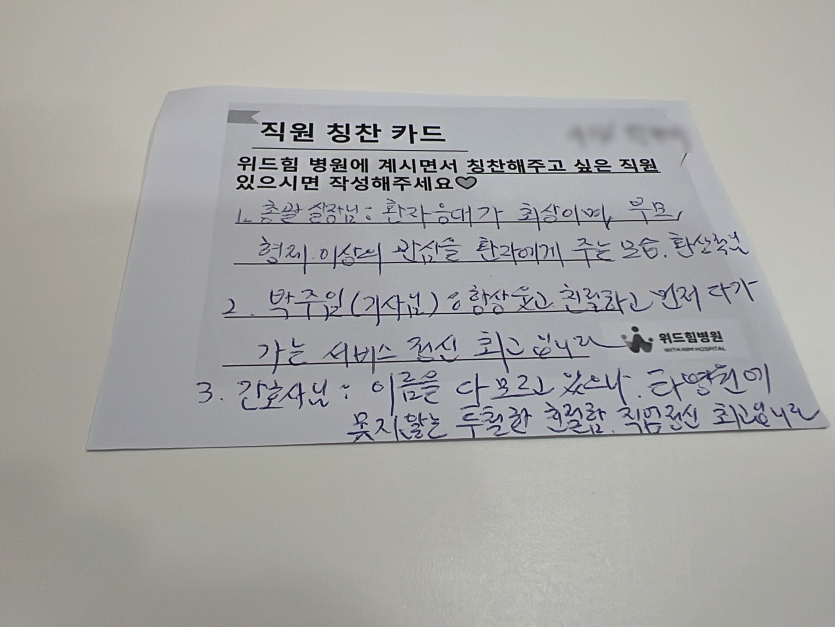 직원 칭찬 카드
위드힘 병원에 계시면서 칭찬해주고 싶은 직원
있으시면 작성해주세요♥
1. 총괄 실장님 : 환자응대가 최상이며, 부모,
형제 이상의 관심을 환자에게 주는 모습.
2. 박주임(기사님) : 항상 웃고 친절하고 먼저 다가
가는 서비스 정신 최고입니다
위드힘병원
WITH HIM HOSPITAL
3. 간호사님 : 이름을 다 모르고 있으나. 타병원에
못지않는 투철한 친절함. 직업정신 최고입니다